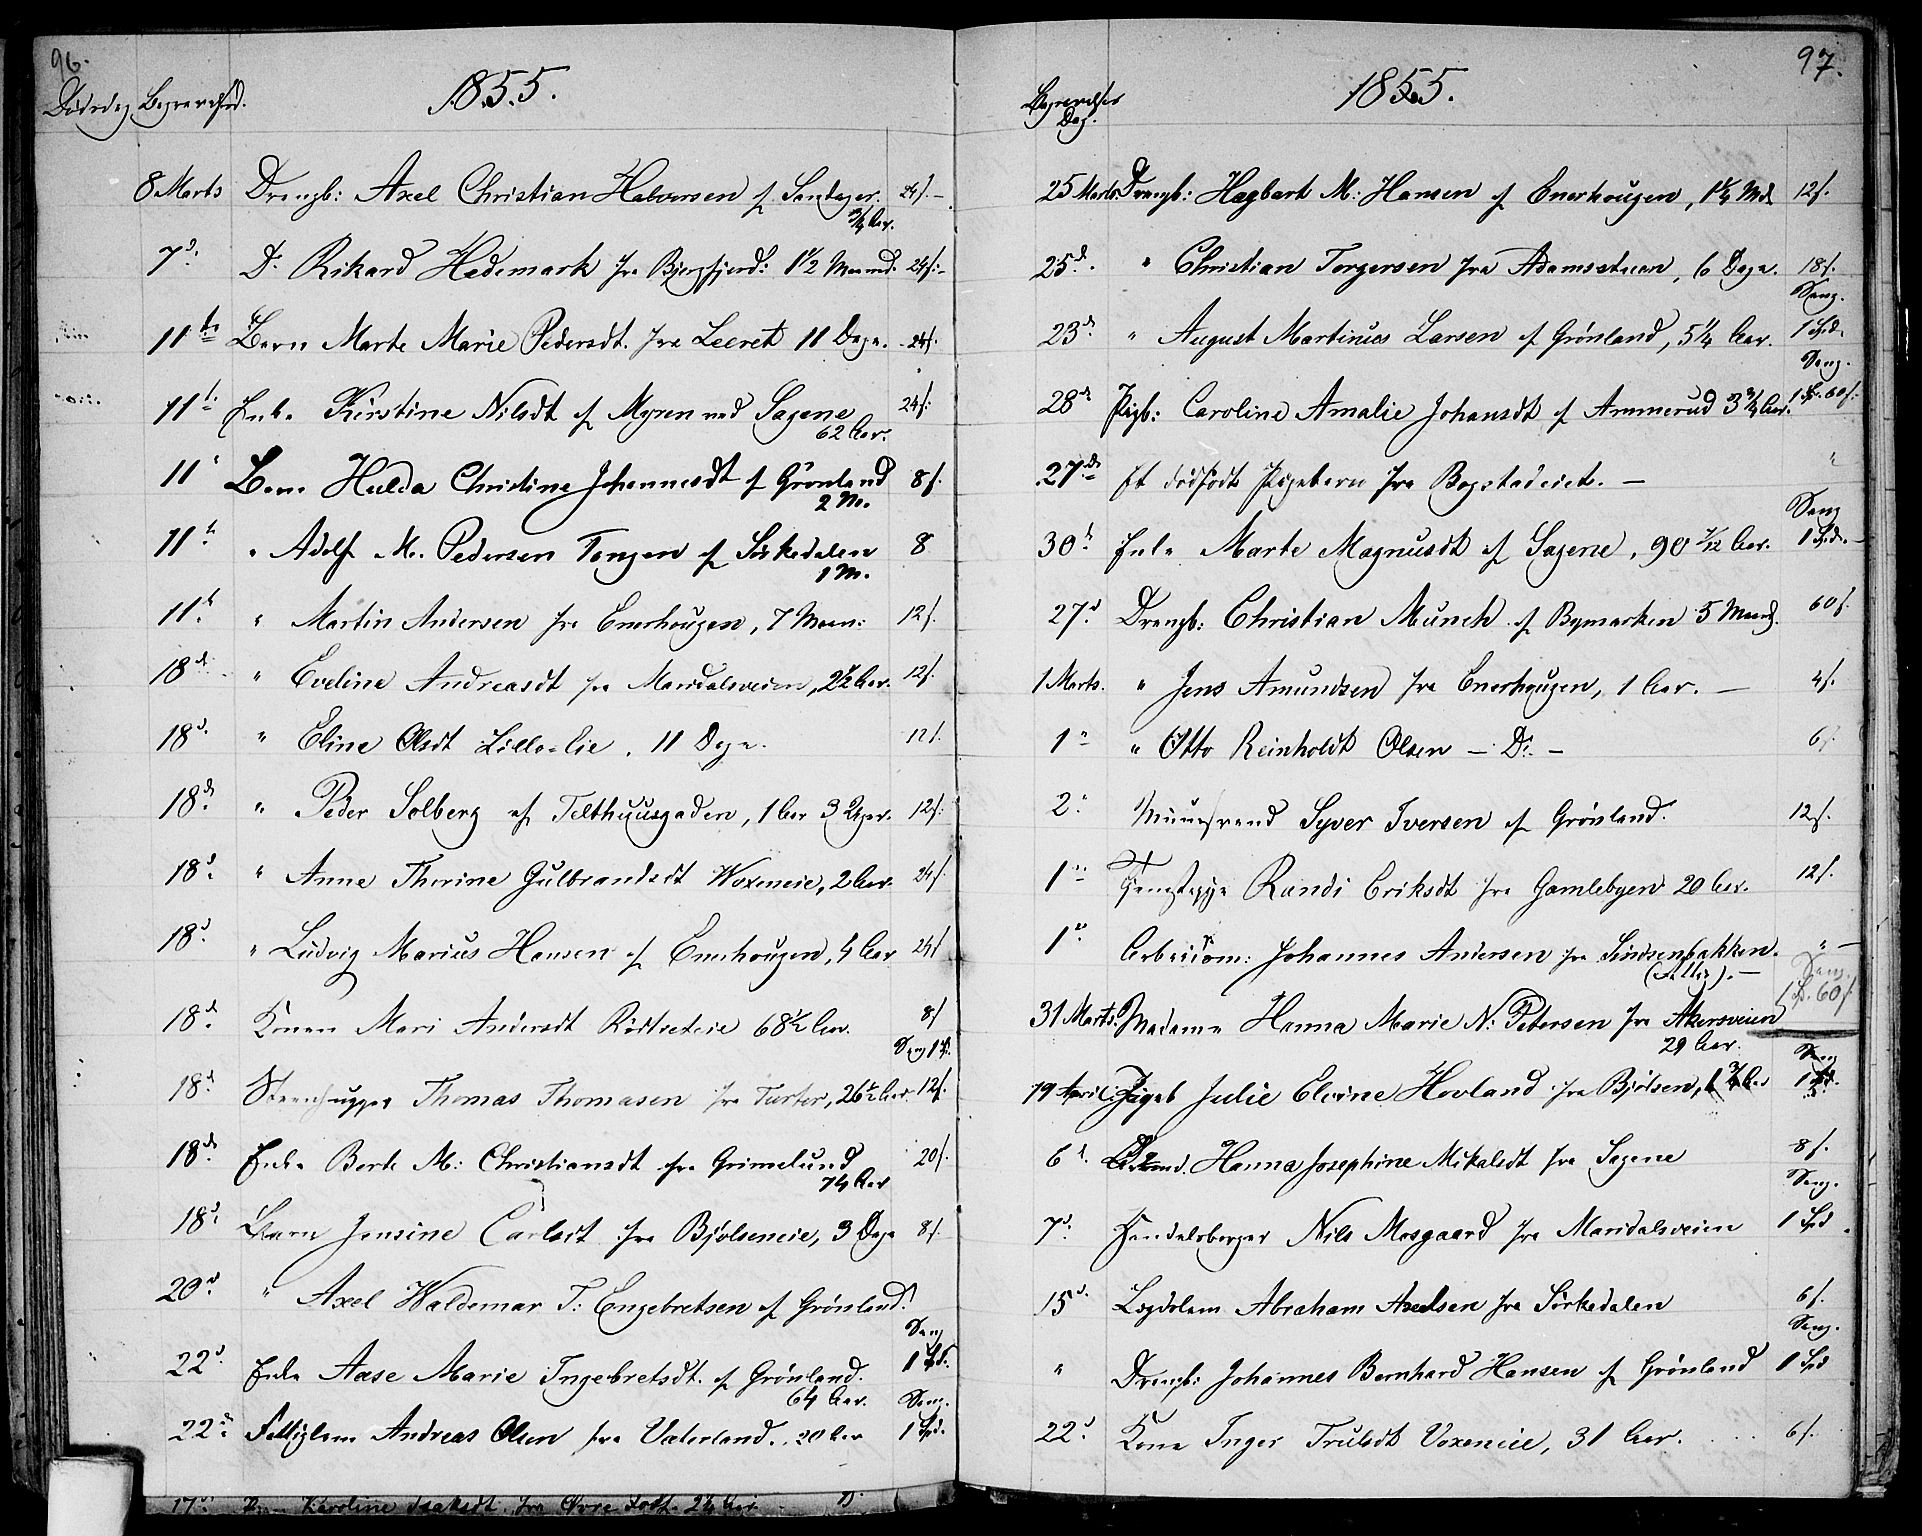 96.
Dødsdag Begravelsesd.
1855.
8 Marts Drengb: Axel Christian Halvorsen af Sandager. 24 s. -
3/4 Aar.
7 d. Do Rikard Hedemark fra Bjergfjerd: 1 1/2 Maaned. 24 s. -
11te Barn Marte Marie Pedersdt. fra Leeret 11 Dage. 24 s.
11t. Enke Kirstine Nilsdt af Myren ved Sagene 24 s:
62 Aar.
11' Barn Hulda Christine Johannesdt af Grönland 8 s.
2 M.
11t. " Adolf M. Pedersen Tangen af Sørkedalen 8
1 M.
11t. " Martin Andersen fra Enerhougen, 7 Maan: 12 s.
18d. " Eveline Andreasdt fra Maridalsveien, 2 1/2 Aar. 12 s.
18d. " Eline Olsdt Lilloeie. 11 Dage. 12 s.
18d. " Peder Solberg af Telthuusgaden, 1 Aar 3 Uger. 12 s.
18d. " Anne Thorine Gulbrandsdt Woxeneie, 2 Aar. 24 s.
18d. " Ludvig Marius Hansen af Enerhougen, 4 Aar 24 s
18d. Konen Mari Andersdt Rødtveteie 68 1/2 Aar. 8 s
Seng 1 Sp.
18d Steenhugger Thomas Thomasen fra Torter, 26 1/2 Aar. 12 s.
18d. Enke Berte M: Christiansdt fra Grimelund 20 s.
74 Aar
18d. Barn Jensine Carlsdt fra Bjølseneie, 3 Dage 8 s.
20d. " Axel Waldemar T: Engebretsen af Grønland.
Seng
22d. Enke Aase Marie Ingebretsdt. af Grønland. 1 Spd.
64 Aar. Seng.
22d. Fattiglem Andreas Olsen fra Vaterland. 20 Aar 1 Spd.
17d. Karoline Isaksdt. fra Øvre Foss. 2 1/4 Aar.
97.
Begravelses
Dag.
1855.
25 Marts. Drengb: Hagbart M: Hansen af Enerhougen, 1 1/4 Md 12 s.
25d. " Christian Torgersen fra Adamsstuen, 6 Dage. 18 s.
Seng.
23d " August Martinus Larsen af Grønland, 5 1/4 Aar. 1 Spd.
Seng.
28d Pigb: Caroline Amalie Johansdt af Ammerud 3 3/4 Aar. 1 Sp. 60 s.
27de Et dødfødt Pigebarn fra Bogstadeiet. — "
Seng
30t. Enke Marte Magnusdt af Sagene, 90 7/12 Aar. 1 Spd. -
27d. Drengb: Christian Munch af Bymarken 5 Maaned. 60 s.
1 Marts. " Jens Amundsen fra Enerhougen, 1 Aar. — 4 s.
1" " Otto Reinholdt Olsen — Do — 6 s.
2" Muursvend Syver Iversen af Grønland. 12 s.
1" Tjenestepige Randi Eriksdt fra Gamlebyen 20 Aar. 12 s.
1" Arbeidsm: Johannes Andersen fra Sindsenbakken. " —
Seng.
31 Marts. Madame Hanna Marie N: Petersen fra Akersveien 1 Sp. 60 s
29 Aar.
Seng
19 April: Pigeb Julie Elvine Hovland fra Bjølsen, 1 3/4 Aar 1 Spd.
6d. Hanna Josephine Mikalsdt fra Sagene 8 s.
Seng.
7d. Handelsborger Nils Mosgaard fra Maridalsveien 1 Spd.
15d. Lægdslem Abraham Axelsen fra Sørkedalen 6 s.
Seng.
" Drengb: Johannes Bernhard Hansen af Grønland 1 Spd
22d. Kone Inger Trulsdt Voxeneie, 31 Aar. 6 s.